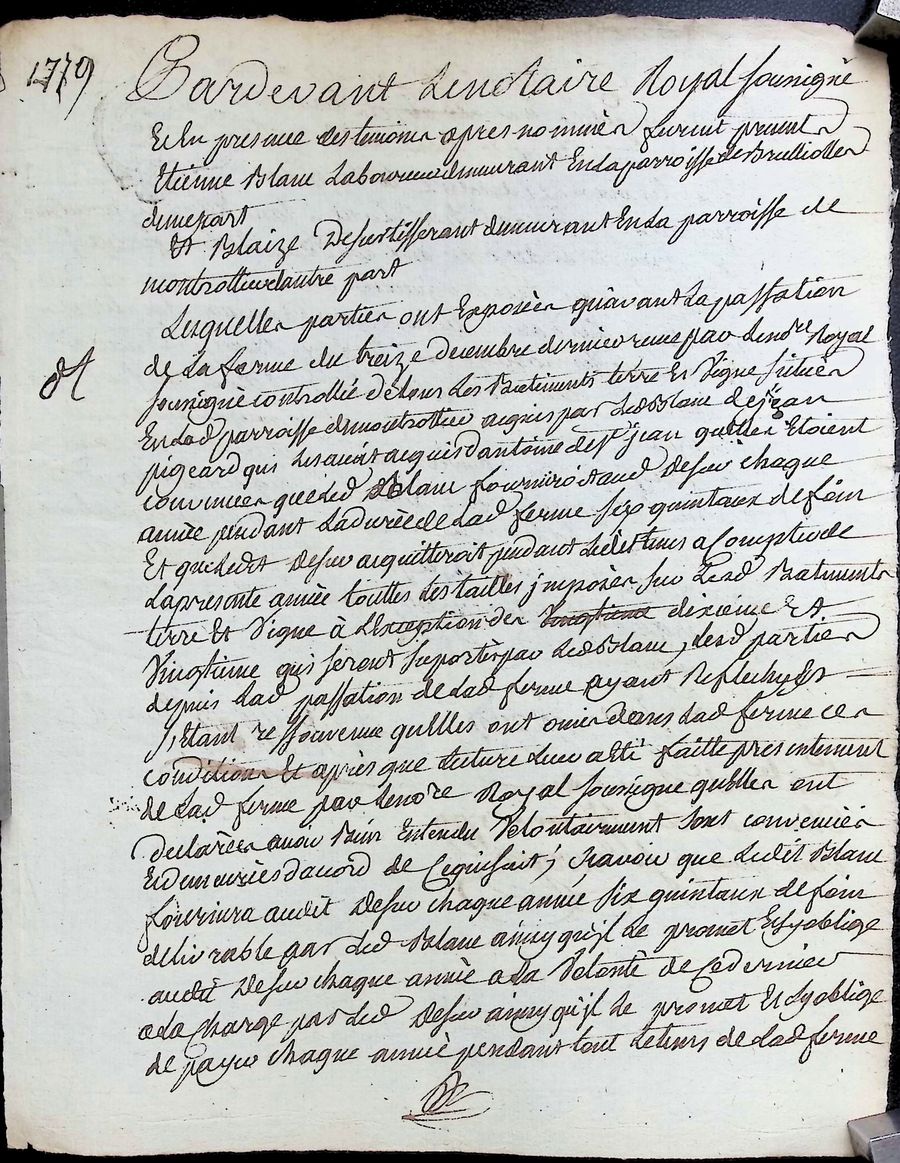 1779
Pardevant Le notaire Royal soussigné
Et En presence des temoins apres nommés furent presents
Etienne Blanc Laboureur demeurant En la parroisse de Brullioles
d'une part
Et Blaize tisserant demeurant En la parroisse de
montrottier d'autre part
Lesquelles parties ont Exposées qu'avant La passation
de La ferme du treize decembre dernier reçue par Le no.re Royal
soussigné controllée de tous Les Batiments terre Et Vigne situés
En lad parroisse de montrottier acquis par Led Blanc de jean
pigeard qui Les avoit acquis d'antoine de st jean qu'elles Etoient
convenues que Led Blanc fourniroit aud chaque
année pendant La durée de Lad ferme six quintaux de foin
Et que Ledt acquitteroit pendant Led tems a Compter de
La presente année touttes Les tailles jmposées sur Lesd Batiments
terre Et Vigne à L'Exception des vingtieme dixieme Et
Vingtieme qui seront suportés par Led Blanc, Lesd parties
depuis Lad passation de Lad ferme ayant Reflechy Et
s'Etant ressouvenue qu'Elles ont omis dans Lad ferme ces
conditions Et après que Lecture Leur a été faitte presentement
de Lad ferme par Le no.re Royal soussigné qu'elles ont
declarées avoir Bien Entendu Volontairement sont convenuës
Et demeurées d'acord de Ce qui suit, sçavoir que Ledit Blanc
fournira audit chaque année six quintaux de foin
delivrable par Led Blanc ainsy qu'jl Le promet Et s'y oblige
audit chaque année a La Volonté de Ce dernier
a La Charge par Led ainsy qu'jl Le promet Et s'y oblige
de payer chaque année pendant tout Le tems de Lad ferme